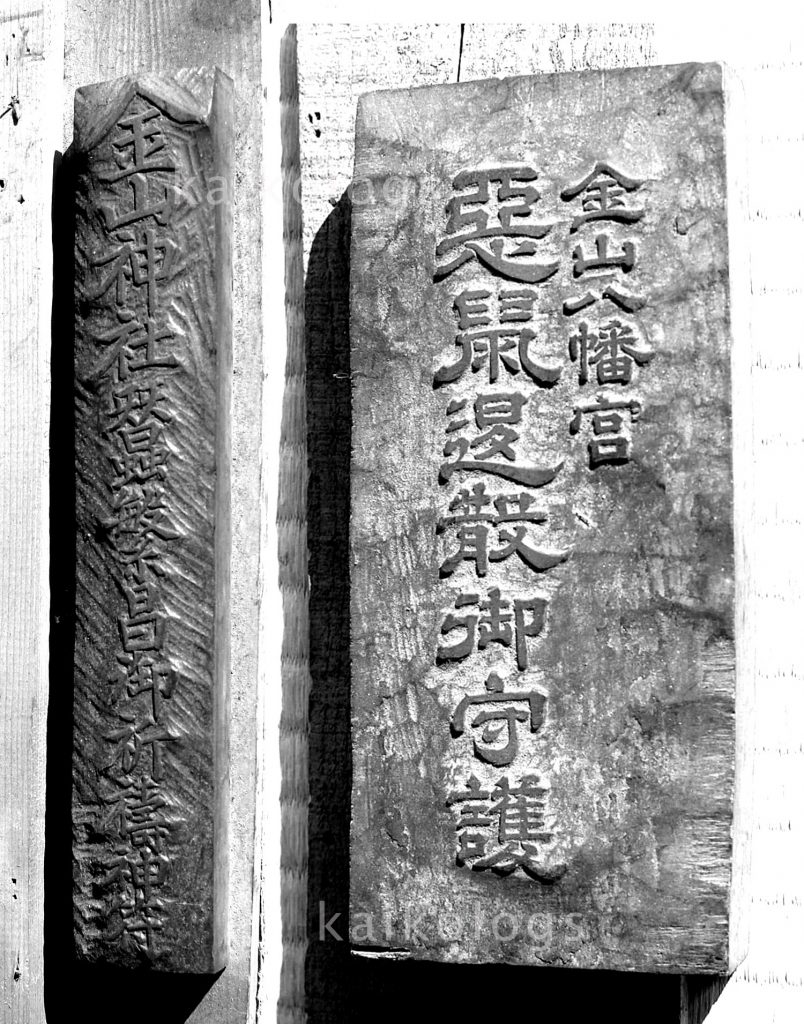 金山八幡宮
惡鼠退散御守護
金山神社蠶繁昌御祈禱神符
kaikologs
kaikologs